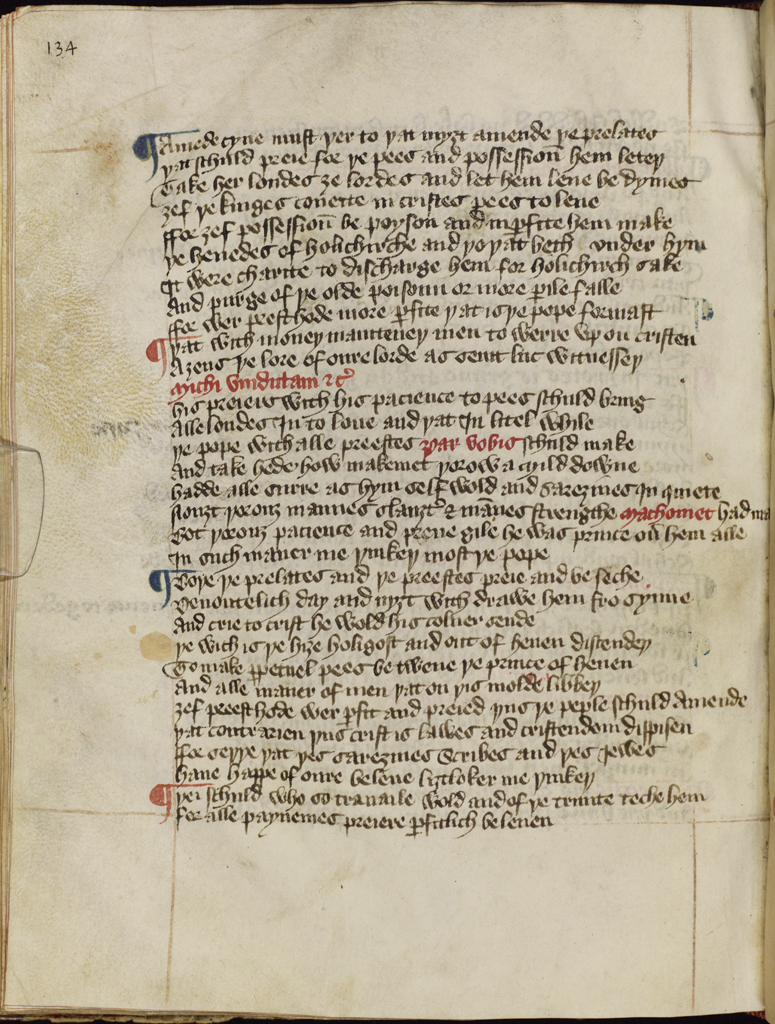 134
A medecyne must yer to yat myȝt amende ye prelates
yat schuld preie for ye pees and possessioū hem letey
Take her londes ȝe lordes and let hem leue be dymes
ȝef ye kinges coueite in cristes pees to leue
ffor ȝef possessioū be poyson and inꝑfite hem make
ye heuedes of holichirche and yo yat beth vnder hym
It were charite to discharge hem for holichirch sake
And purge of ye olde poisoun or more ꝑile falle
ffor wer presthode more ꝑfite yat is ye pope formast
yat with money mauteney men to werre vp on cristen
Aȝeus ye lore of oure lorde as seint luc witnessey
Michi vindictam ⁊ cͣ
his preieris with his pacience to pees schuld bring
Alle londes In to loue and yat In litel while
ye pope with alle preestes pax vobis schuld make
And take hede how makemet yorow a myld dowue
hadde alle surre as hym self wold and sareȝines In quiete
Nouȝt yorouȝ mannes slauȝt ⁊ māues strengthe Machomet had
Bot yorouȝ pacience and preue gile he was prince ou hem alle
In such maner me yinkey most ye pope
Boye ye prelates and ye preestes preie and be seche
Deuoutelich day and nyȝt with drawe hem fro synne
And crie to crist he wold his coluer sende
ye wich is ye hiȝe holigost and out of heuen discendey
To make ꝑpetuel pees be twene ye prince of heuen
And alle maner of men yat on yis molde libbey
ȝef preesthode wer ꝑfit and preied yus ye peple schuld amende
yat contrarien yus crist is lawes and cristendom dispisen
ffor seyye yat yes sareȝines Scribes and yes Jewes
haue happe of oure beleue liȝtloker me yinkey
yei schuld who so trauaile wold and of ye trinite teche hem
for alle paynemes preiere ꝑfitlich beleuen